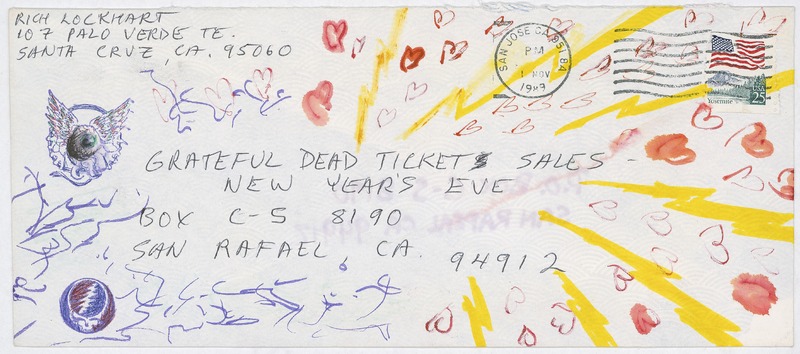 RICH LOCKHART
107 PALO VERDE TE.
SANTA CRUZ, CA. 95060
SAN JOSE CA 951 8A
PM
1 NOV
1989
Yosemite
USA
25
GRATEFUL DEAD TICKETS SALES -
NEW YEAR'S EVE
BOX C-S 8190
SAN RAFAEL, CA. 94912